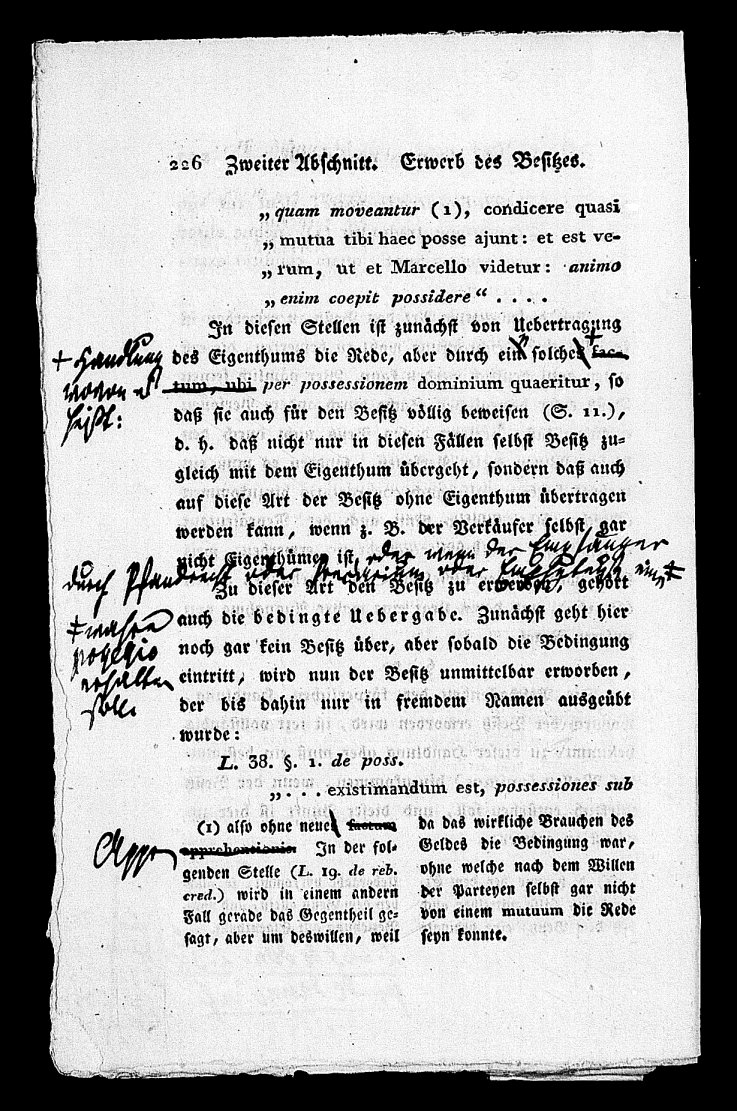 226 Zweiter Abschnitt. Erwerb des Besitzes.
„quam moveantur (1), condicere quasi
„mutua tibi haec posse ajunt: et est ve-
„rum, ut et Marcello videtur: animo
„enim coepit possidere“ . . . .
In diesen Stellen ist zunächst von Uebertragung
+ Handlung
wovon es
heißt:
des Eigenthums die Rede, aber durch ein solches + fac-
tum, ubi per possessionem dominium quaeritur, so
daß sie auch für den Besitz völlig beweisen (S. 11.),
d. h. daß nicht nur in diesen Fällen selbst Besitz zu-
gleich mit dem Eigenthum übergeht, sondern daß auch
auf diese Art der Besitz ohne Eigenthum übertragen
werden kann, wenn z. B. der Verkäufer selbst gar
nicht Eigenthümer ist, oder wenn der Empfänger
durch Pfandrecht oder Precarium oder Emphyteuse nur ‡
‡ wahre
possessio
erhalten
soll.
Zu dieser Art den Besitz zu erwerben, gehört
auch die bedingte Uebergabe. Zunächst geht hier
noch gar kein Besitz über, aber sobald die Bedingung
eintritt, wird nun der Besitz unmittelbar erworben,
der bis dahin nur in fremdem Namen ausgeübt
wurde:
L. 38. §. 1. de poss.
„. . . existimandum est, possessiones sub
(1) also ohne neues factum
Appr
apprehensionis. In der fol-
genden Stelle (L. 19. de reb.
cred.) wird in einem andern
Fall gerade das Gegentheil ge-
sagt, aber um deswillen, weil
da das wirkliche Brauchen des
Geldes die Bedingung war,
ohne welche nach dem Willen
der Parteyen selbst gar nicht
von einem mutuum die Rede
seyn konnte.